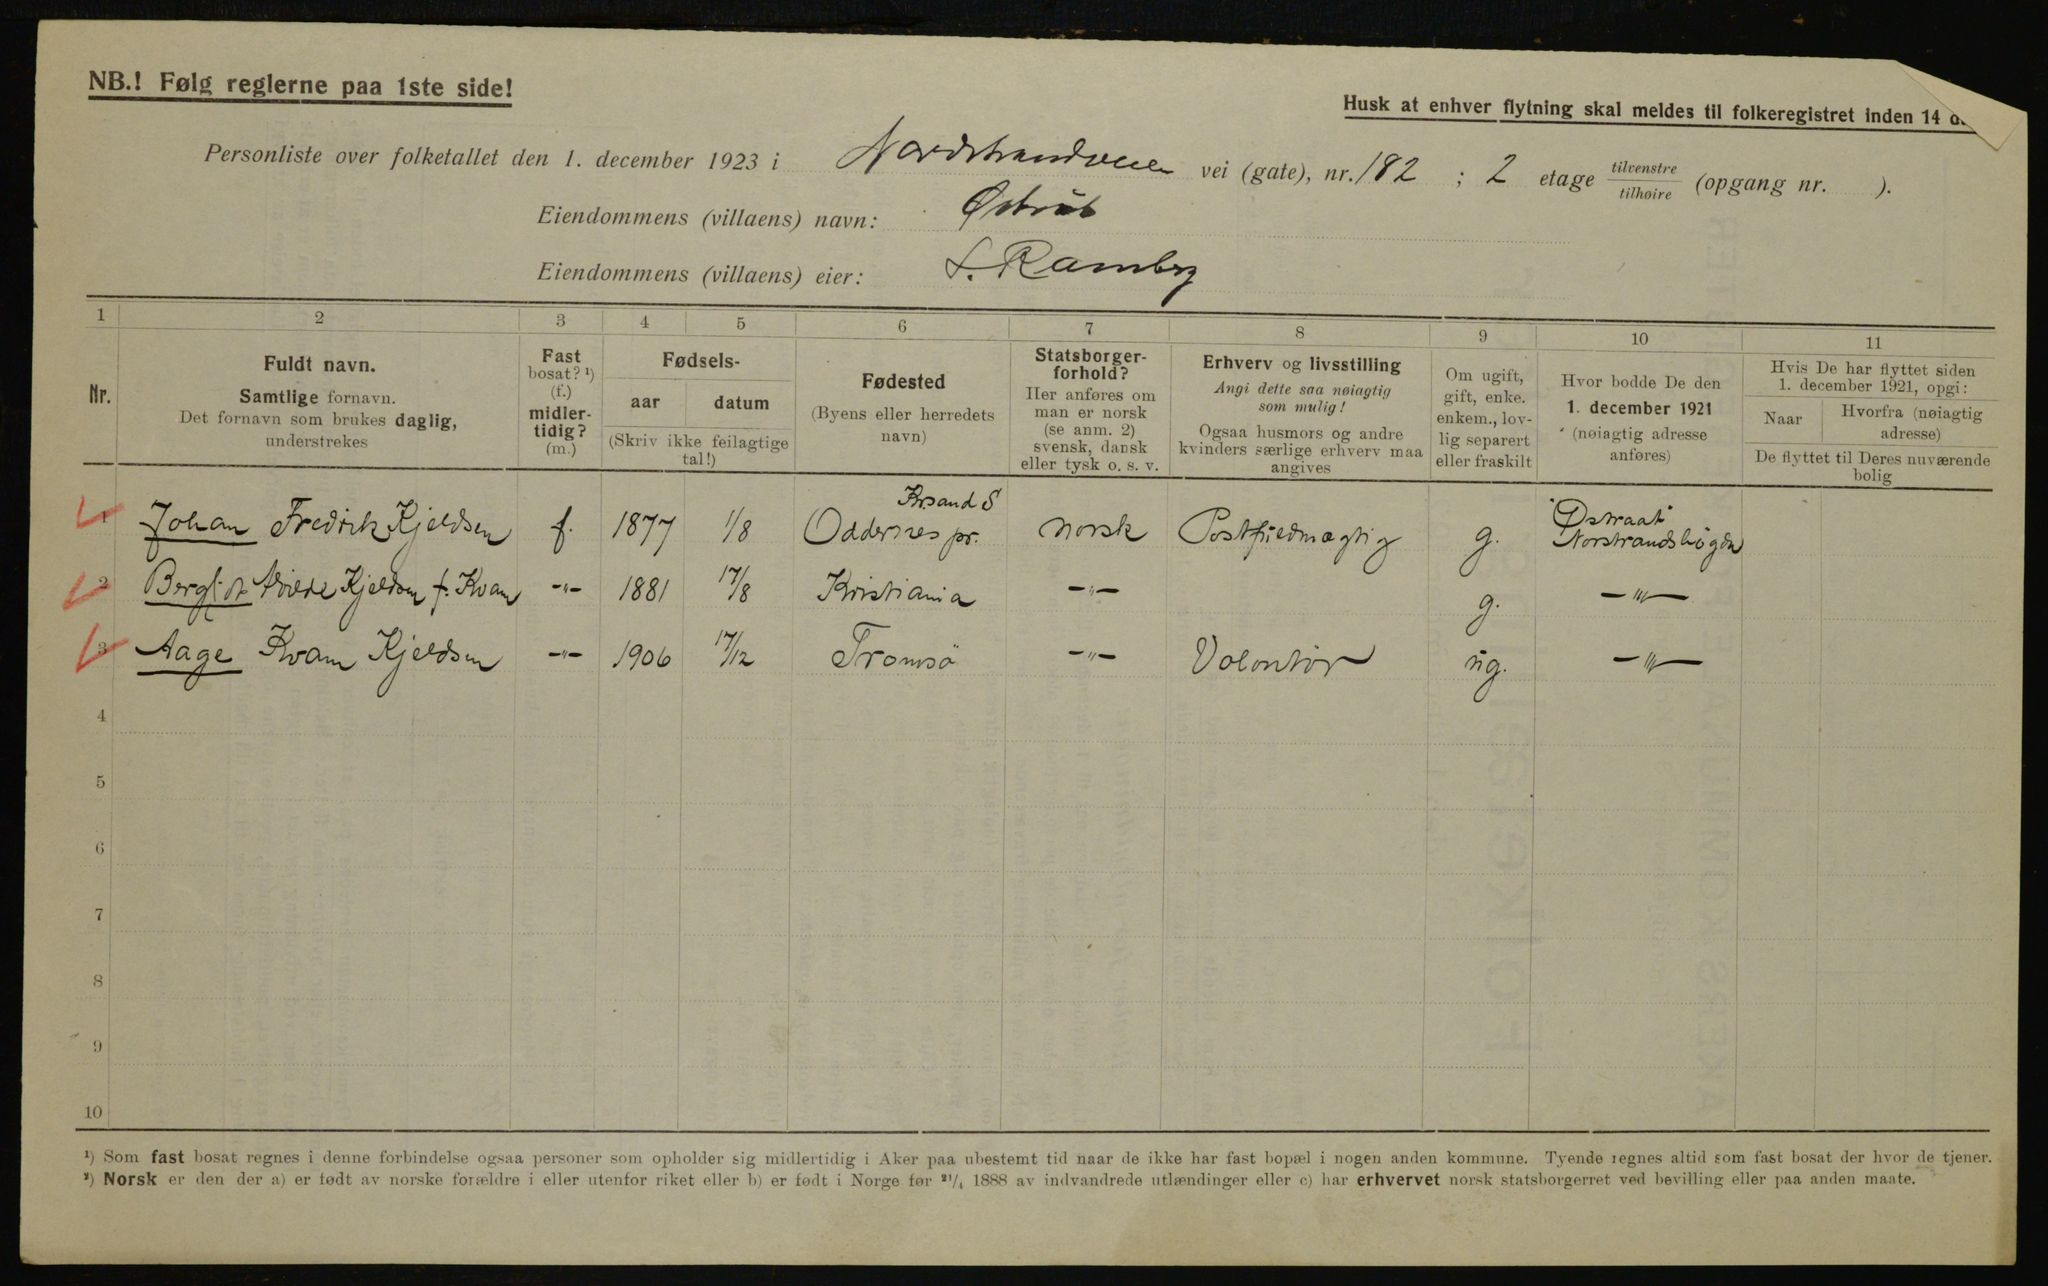 NB.! Følg reglerne paa 1ste side!
Husk at enhver flytning skal meldes til folkeregistret inden 14
Personliste over folketallet den 1. december 1923 i Nordstrandveien vei (gate), nr. 182 ; 2 etage tilvenstre / tilhøire (opgang nr. ).
Eiendommens (villaens) navn:
Eiendommens (villaens) eier: Ramberg
1 2 3 4 5 6 7 8 9 10 11
Nr.
Fuldt navn.
Samtlige fornavn.
Det fornavn som brukes daglig,
understrekes
Fast
bosat? ¹)
(f.)
midler-
tidig?
(m.)
Fødsels-
aar datum
(Skriv ikke feilagtige
tal!)
Fødested
(Byens eller herredets
navn)
Statsborger-
forhold?
Her anføres om
man er norsk
(se anm. 2)
svensk, dansk
eller tysk o. s. v.
Erhverv og livsstilling
Angi dette saa nøiagtig
som mulig!
Ogsaa husmors og andre
kvinders særlige erhverv maa
angives
Om ugift,
gift, enke.
enkem., lov-
lig separert
eller fraskilt
Hvor bodde De den
1. december 1921
(nøiagtig adresse
anføres)
Hvis De har flyttet siden
1. december 1921, opgi:
Naar
Hvorfra (nøiagtig
adresse)
De flyttet til Deres nuværende
bolig
1 Johan Fredrik Kjeldsen f. 1877 1/8 Krsand S Oddernes pr. norsk Postfuldmægtig g. "Østraat" Norstrandshøgda
2 Bergliot Kjeldsen f. Kvam -"- 1881 17/8 Kristiania -"- g. -"-
3 Aage Kvam Kjeldsen -"- 1906 17/12 Tromsö -"- Volontør ug. -"-
4
5
6
7
8
9
10
¹) Som fast bosat regnes i denne forbindelse ogsaa personer som opholder sig midlertidig i Aker paa ubestemt tid naar de ikke har fast bopæl i nogen anden kommune. Tyende regnes altid som fast bosat der hvor de tjener.
²) Norsk er den der a) er født av norske forældre i eller utenfor riket eller b) er født i Norge før ²¹/₄ 1888 av indvandrede utlændinger eller c) har erhvervet norsk statsborgerret ved bevilling eller paa anden maate.